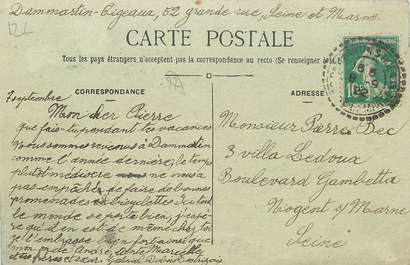 Dammartin-Tigeaux, 52 grande rue, Seine et Marne
12L
CARTE POSTALE
Tous les pays étrangers n'acceptent pas la correspondance au recto (Se renseigner
CORRESPONDANCE
ADRESSE
7 septembre
Mon cher Pierre
que fais-tu pendant tes vacances
Nous sommes revenus à Dammartin
comme l'année dernière, le temps
plutôt médiocre ne nous a
pas empêché de faire de bonnes
promenades à bicyclettes. Ici tout
le monde se porte bien, j'espè-
re qu'il en est de même chez toi
je t'embrasse bien fort ainsi que
mon oncle André, tante Marcelle
et tes frères et sœur.
Monsieur Pierre Dec
3 villa Ledoux
Boulevard Gambetta
Nogent s/ Marne
Seine